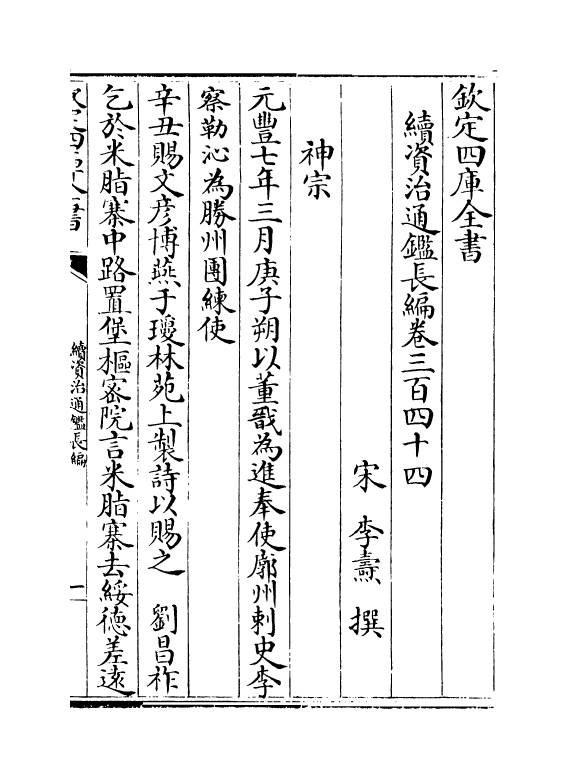 欽定四庫全書
續資治通鑑長編卷三百四十四
宋 李燾 撰
神宗
元豐七年三月庚子朔以董戩為進奉使廓州刺史李
察勒沁為勝州團練使
辛丑賜文彦博燕于瓊林苑上製詩以賜之 劉昌祚
乞於米脂寨中路置堡樞密院言米脂寨去綏德差遠
欽定四庫全書
續資治通鑑長編
一